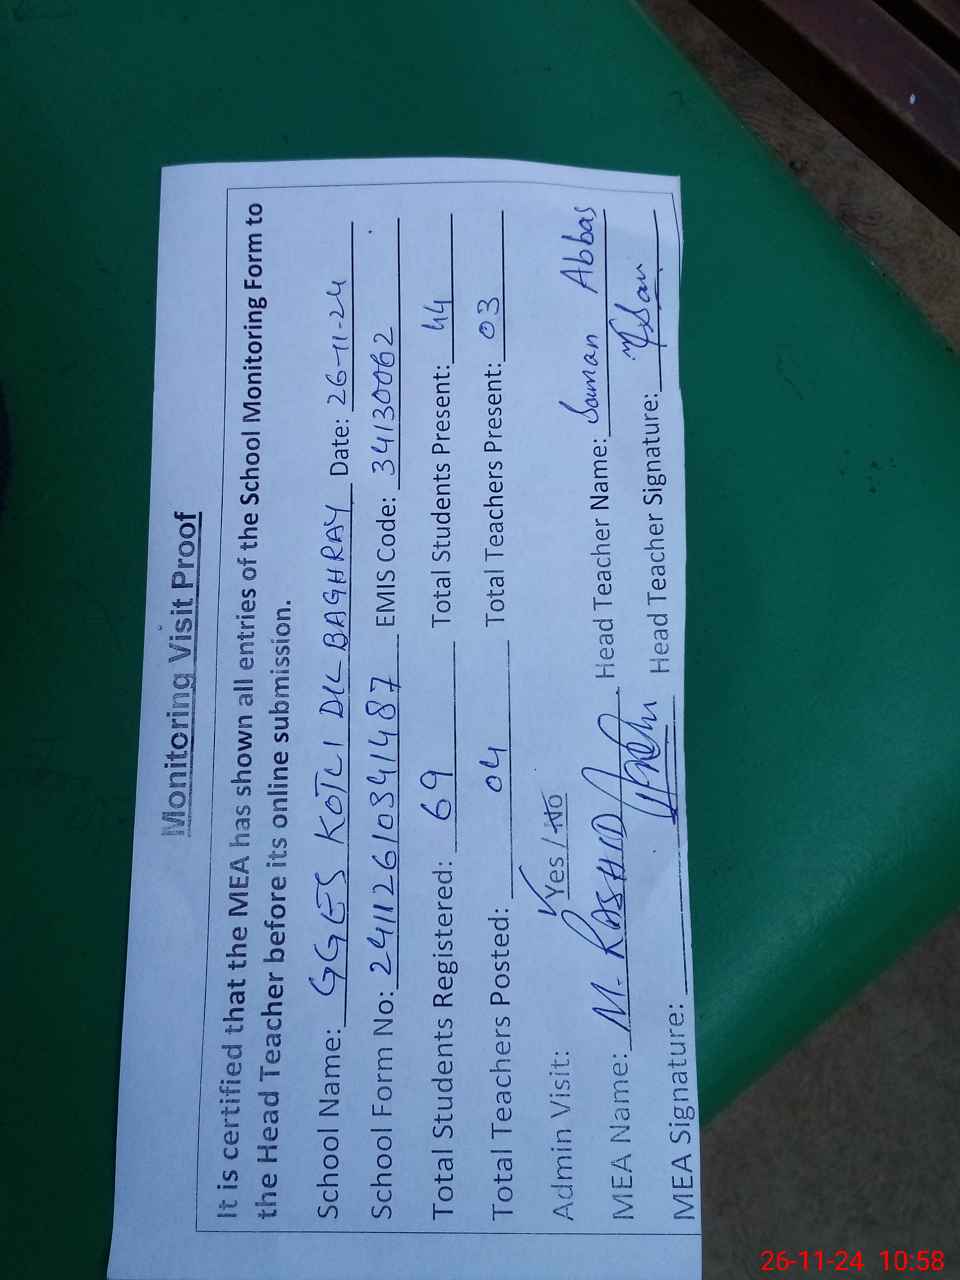 Monitoring Visit Proof
It is certified that the MEA has shown all entries of the School Monitoring Form to
the Head Teacher before its online submission.
School Name: GGES KOTLI DIL BAGHRAY Date: 26-11-24
School Form No: 24112610341487 EMIS Code: 34130062
Total Students Registered: 69 Total Students Present: 44
Total Teachers Posted: 04 Total Teachers Present: 03
Admin Visit: Yes / No
MEA Name: M. RASHID Head Teacher Name: Saman Abbas
MEA Signature: Head Teacher Signature:
26-11-24 10:58